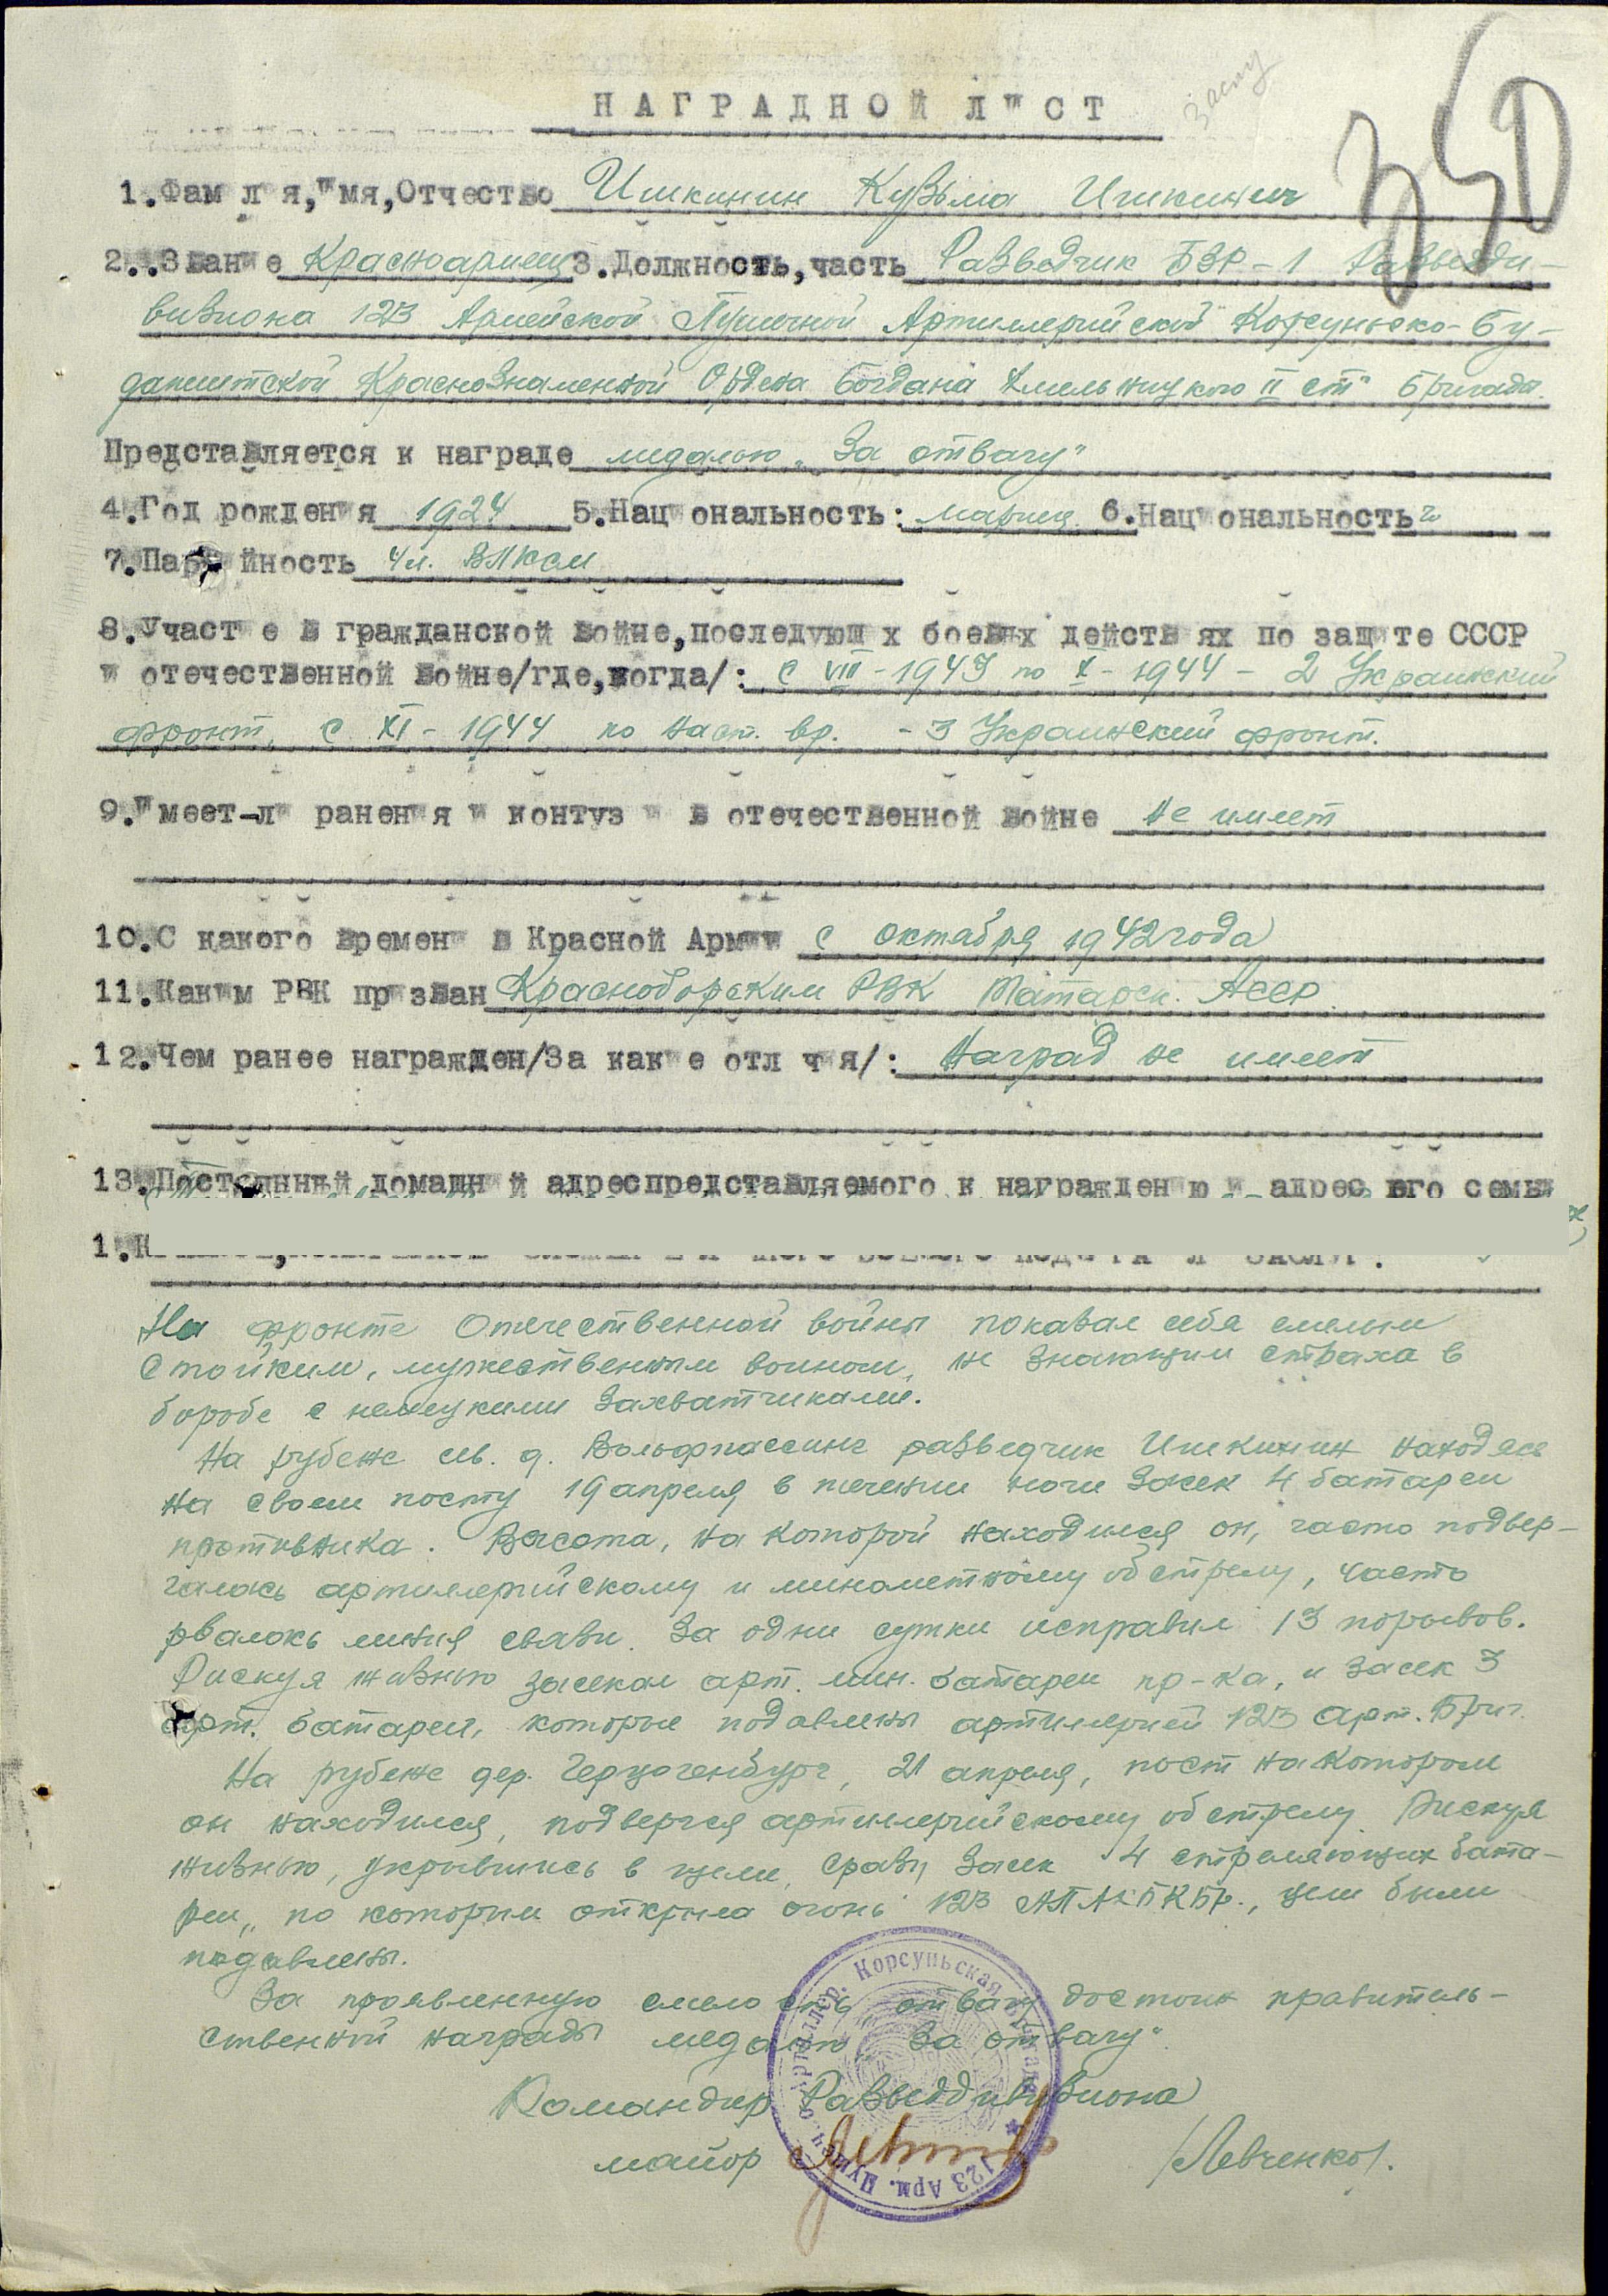 НАГРАДНОЙ ЛИСТ
350
1.Фамилия,имя,Отчество Ишкинин Кузьма Ишкинич
2..Звание Красноармеец 3.Должность,часть Разведчик БЗР-1 Разведди-
визиона 123 Армейской Пушечной Артиллерийской Корсуньско-Бу-
дапештской Краснознаменной Ордена Богдана Хмельницкого II ст" бригады.
Представляется к награде медалью „За отвагу"
4.Год рождения 1924 5.Национальность: мариец 6.Национальность
7.Партийность чл. ВЛКСМ
8.Участие в гражданской войне,последующих боевых действиях по защите СССР
и отечественной войне/где,когда/: с VIII-1943 по X-1944 - 2 Украинский
фронт, с XI-1944 по наст. вр. - 3 Украинский фронт.
9.Имеет-ли ранения и контузии в отечественной войне не имеет
10.С какого времени в Красной Армии с октября 1942 года
11.Каким РВК призван Красноборским РВК Татарск. АССР.
12.Чем ранее награжден/За какие отличия/: Наград не имеет
13.Постоянный домашний адреспредставляемого к награждению и адрес его семьи
На фронте Отечественной войны показал себя смелым
стойким, мужественным воином, не знающим страха в
боробе с немецкими захватчиками.
На рубеже св. д. Вольфпассинг разведчик Ишкинин находясь
на своем посту 19 апреля в течении ночи засек 4 батареи
противника. Высота, на которой находился он, часто подвер-
галась артиллерийскому и минометному обстрелу, часто
рвалась линия связи. За одни сутки исправил 13 порывов.
Рискуя жизнью засекал арт. мин. батареи пр-ка, и засек 3
арт. батареи, которые подавлены артиллерией 123 арт. Бриг.
На рубеже дер. Герцогенбург, 21 апреля, пост на котором
он находился, подвергся артиллерийскому обстрелу. Рискуя
жизнью, укрывшись в щели, сразу засек 4 стреляющих бата-
реи, по которым открыла огонь 123 АПАКБКБр., цели были
подавлены.
За проявленную смелость отвагу достоин правитель-
ственной награды медали „За отвагу".
Командир Разведдивизиона
майор /Левченко/.
123 Арм. Пушеч. Артиллер. Корсуньская